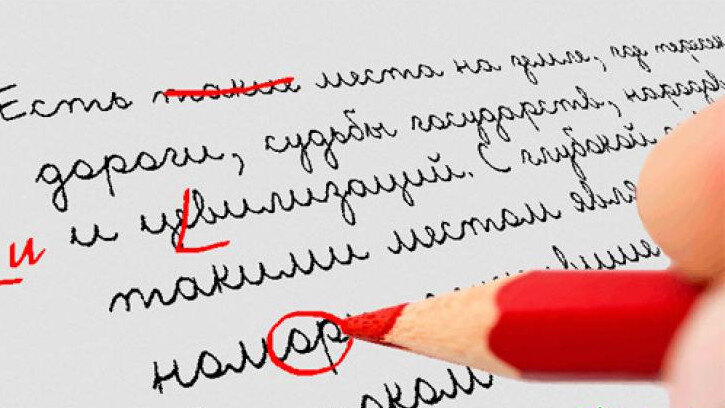 Есть такие места на земле, где пересе
дороги, судьбы государств, народов
и и цевилизаций. С глубокой
такими местом явля
номор вшие
оком